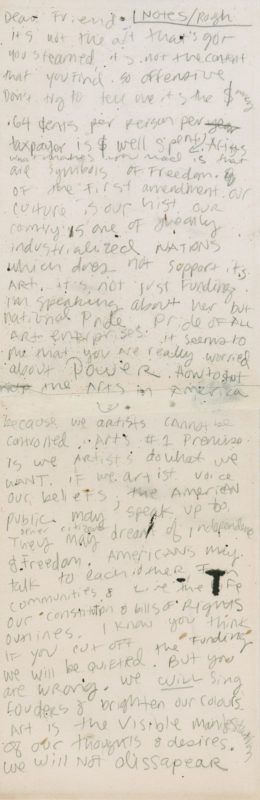 Dear Friend. NOTES/Rough
it's not the art that's got
you steamed, it's not the content
that you find so offensive
Don't try to tell me its the $ money
.64 cents per person per year
taxpayer is $ well spent). Artists
are symbols of Freedom. &
of the First amendment. our
culture is our hist our
country is one of
industrialized NATIONS
which does not support its
ART. it's not just funding.
I'm speaking about her but
national Pride. Pride of ALL
Art enterprises. it seems to
me that you are really worried
about Power. How to shut
the Arts in America
because we artists cannot be
controlled. Art's #1 Premise
is we Artists do what we
WANT. IF we artist voice
our beliefs, the American
public may speak up to.
other citizens
They may dream of independence
& Freedom. Americans may
talk to each other in
communities & Live the life
our constitution & bill of RIGHTS
outlines. I know you think
IF you cut off the Funding
we will be quieted. But you
are wrong. we WILL sing
louder & brighten our colours.
Art is the visible manifestation
of our thoughts & desires.
we will Not dissapear